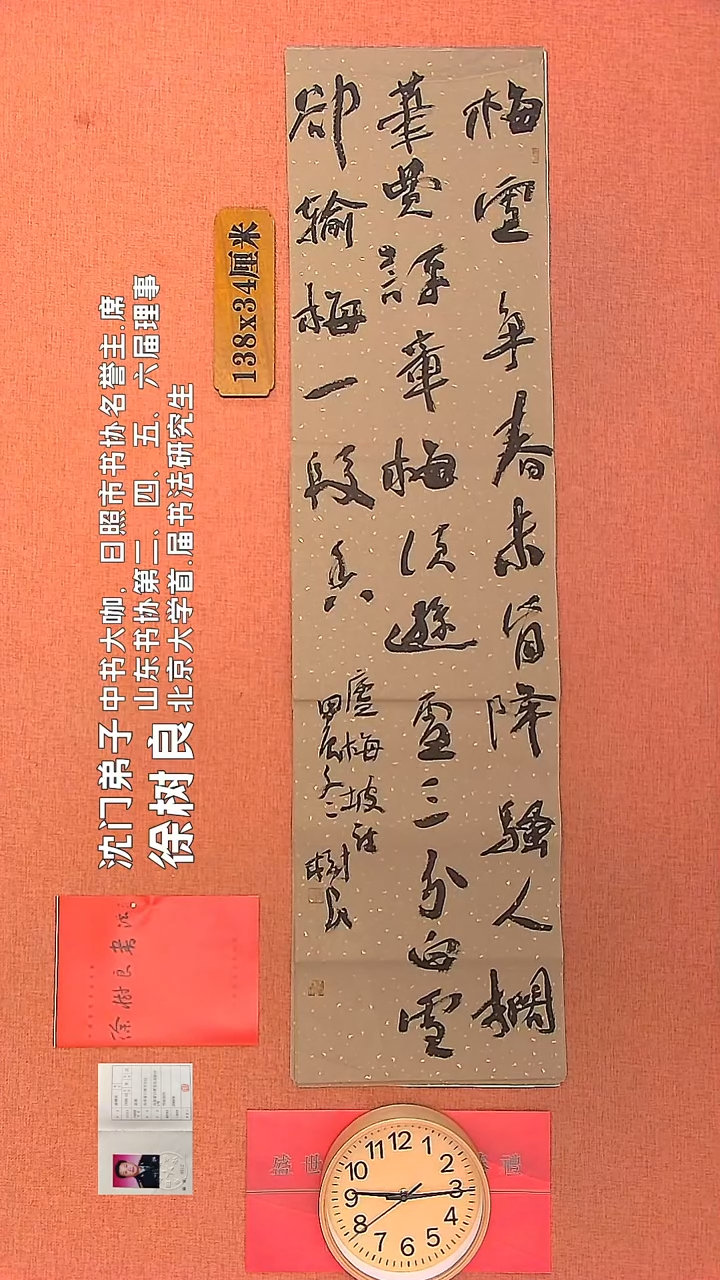 梅雪争春未肯降騷人擱
筆費評章梅須遜雪三分白雪
卻輸梅一段香
盧梅坡詩
甲辰冬 樹良
138x34厘米
沈门弟子 中书大咖，日照市书协名誉主.席
山东书协第三、四、五、六届理事
徐树良 北京大学首.届书法研究生
徐树良书法
12 1 2 3 4 5 6 7 8 9 10 11